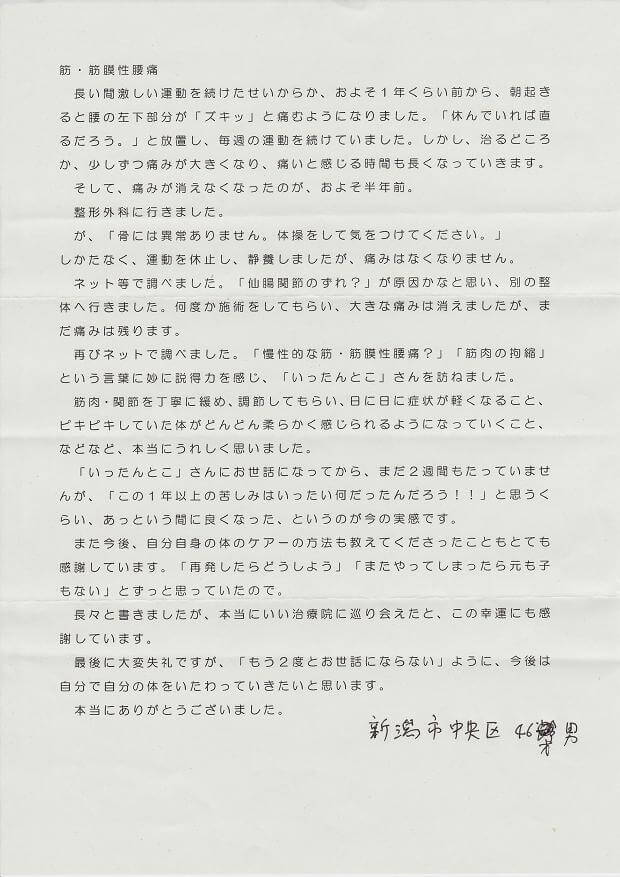 筋・筋膜性腰痛
長い間激しい運動を続けたせいからか、およそ１年くらい前から、朝起き
ると腰の左下部分が「ズキッ」と痛むようになりました。「休んでいれば直
るだろう。」と放置し、毎週の運動を続けていました。しかし、治るどころ
か、少しずつ痛みが大きくなり、痛いと感じる時間も長くなっていきます。
そして、痛みが消えなくなったのが、およそ半年前。
整形外科に行きました。
が、「骨には異常ありません。体操をして気をつけてください。」
しかたなく、運動を休止し、静養しましたが、痛みはなくなりません。
ネット等で調べました。「仙腸関節のずれ？」が原因かなと思い、別の整
体へ行きました。何度か施術をしてもらい、大きな痛みは消えましたが、ま
だ痛みは残ります。
再びネットで調べました。「慢性的な筋・筋膜性腰痛？」「筋肉の拘縮」
という言葉に妙に説得力を感じ、「いったんとこ」さんを訪ねました。
筋肉・関節を丁寧に緩め、調節してもらい、日に日に症状が軽くなること、
ピキピキしていた体がどんどん柔らかく感じられるようになっていくこと、
などなど、本当にうれしく思いました。
「いったんとこ」さんにお世話になってから、まだ２週間もたっていませ
んが、「この１年以上の苦しみはいったい何だったんだろう！！」と思うく
らい、あっという間に良くなった、というのが今の実感です。
また今後、自分自身の体のケアーの方法も教えてくださったこともとても
感謝しています。「再発したらどうしよう」「またやってしまったら元も子
もない」とずっと思っていたので。
長々と書きましたが、本当にいい治療院に巡り会えたと、この幸運にも感
謝しています。
最後に大変失礼ですが、「もう２度とお世話にならない」ように、今後は
自分で自分の体をいたわっていきたいと思います。
本当にありがとうございました。
新潟市中央区 46才男